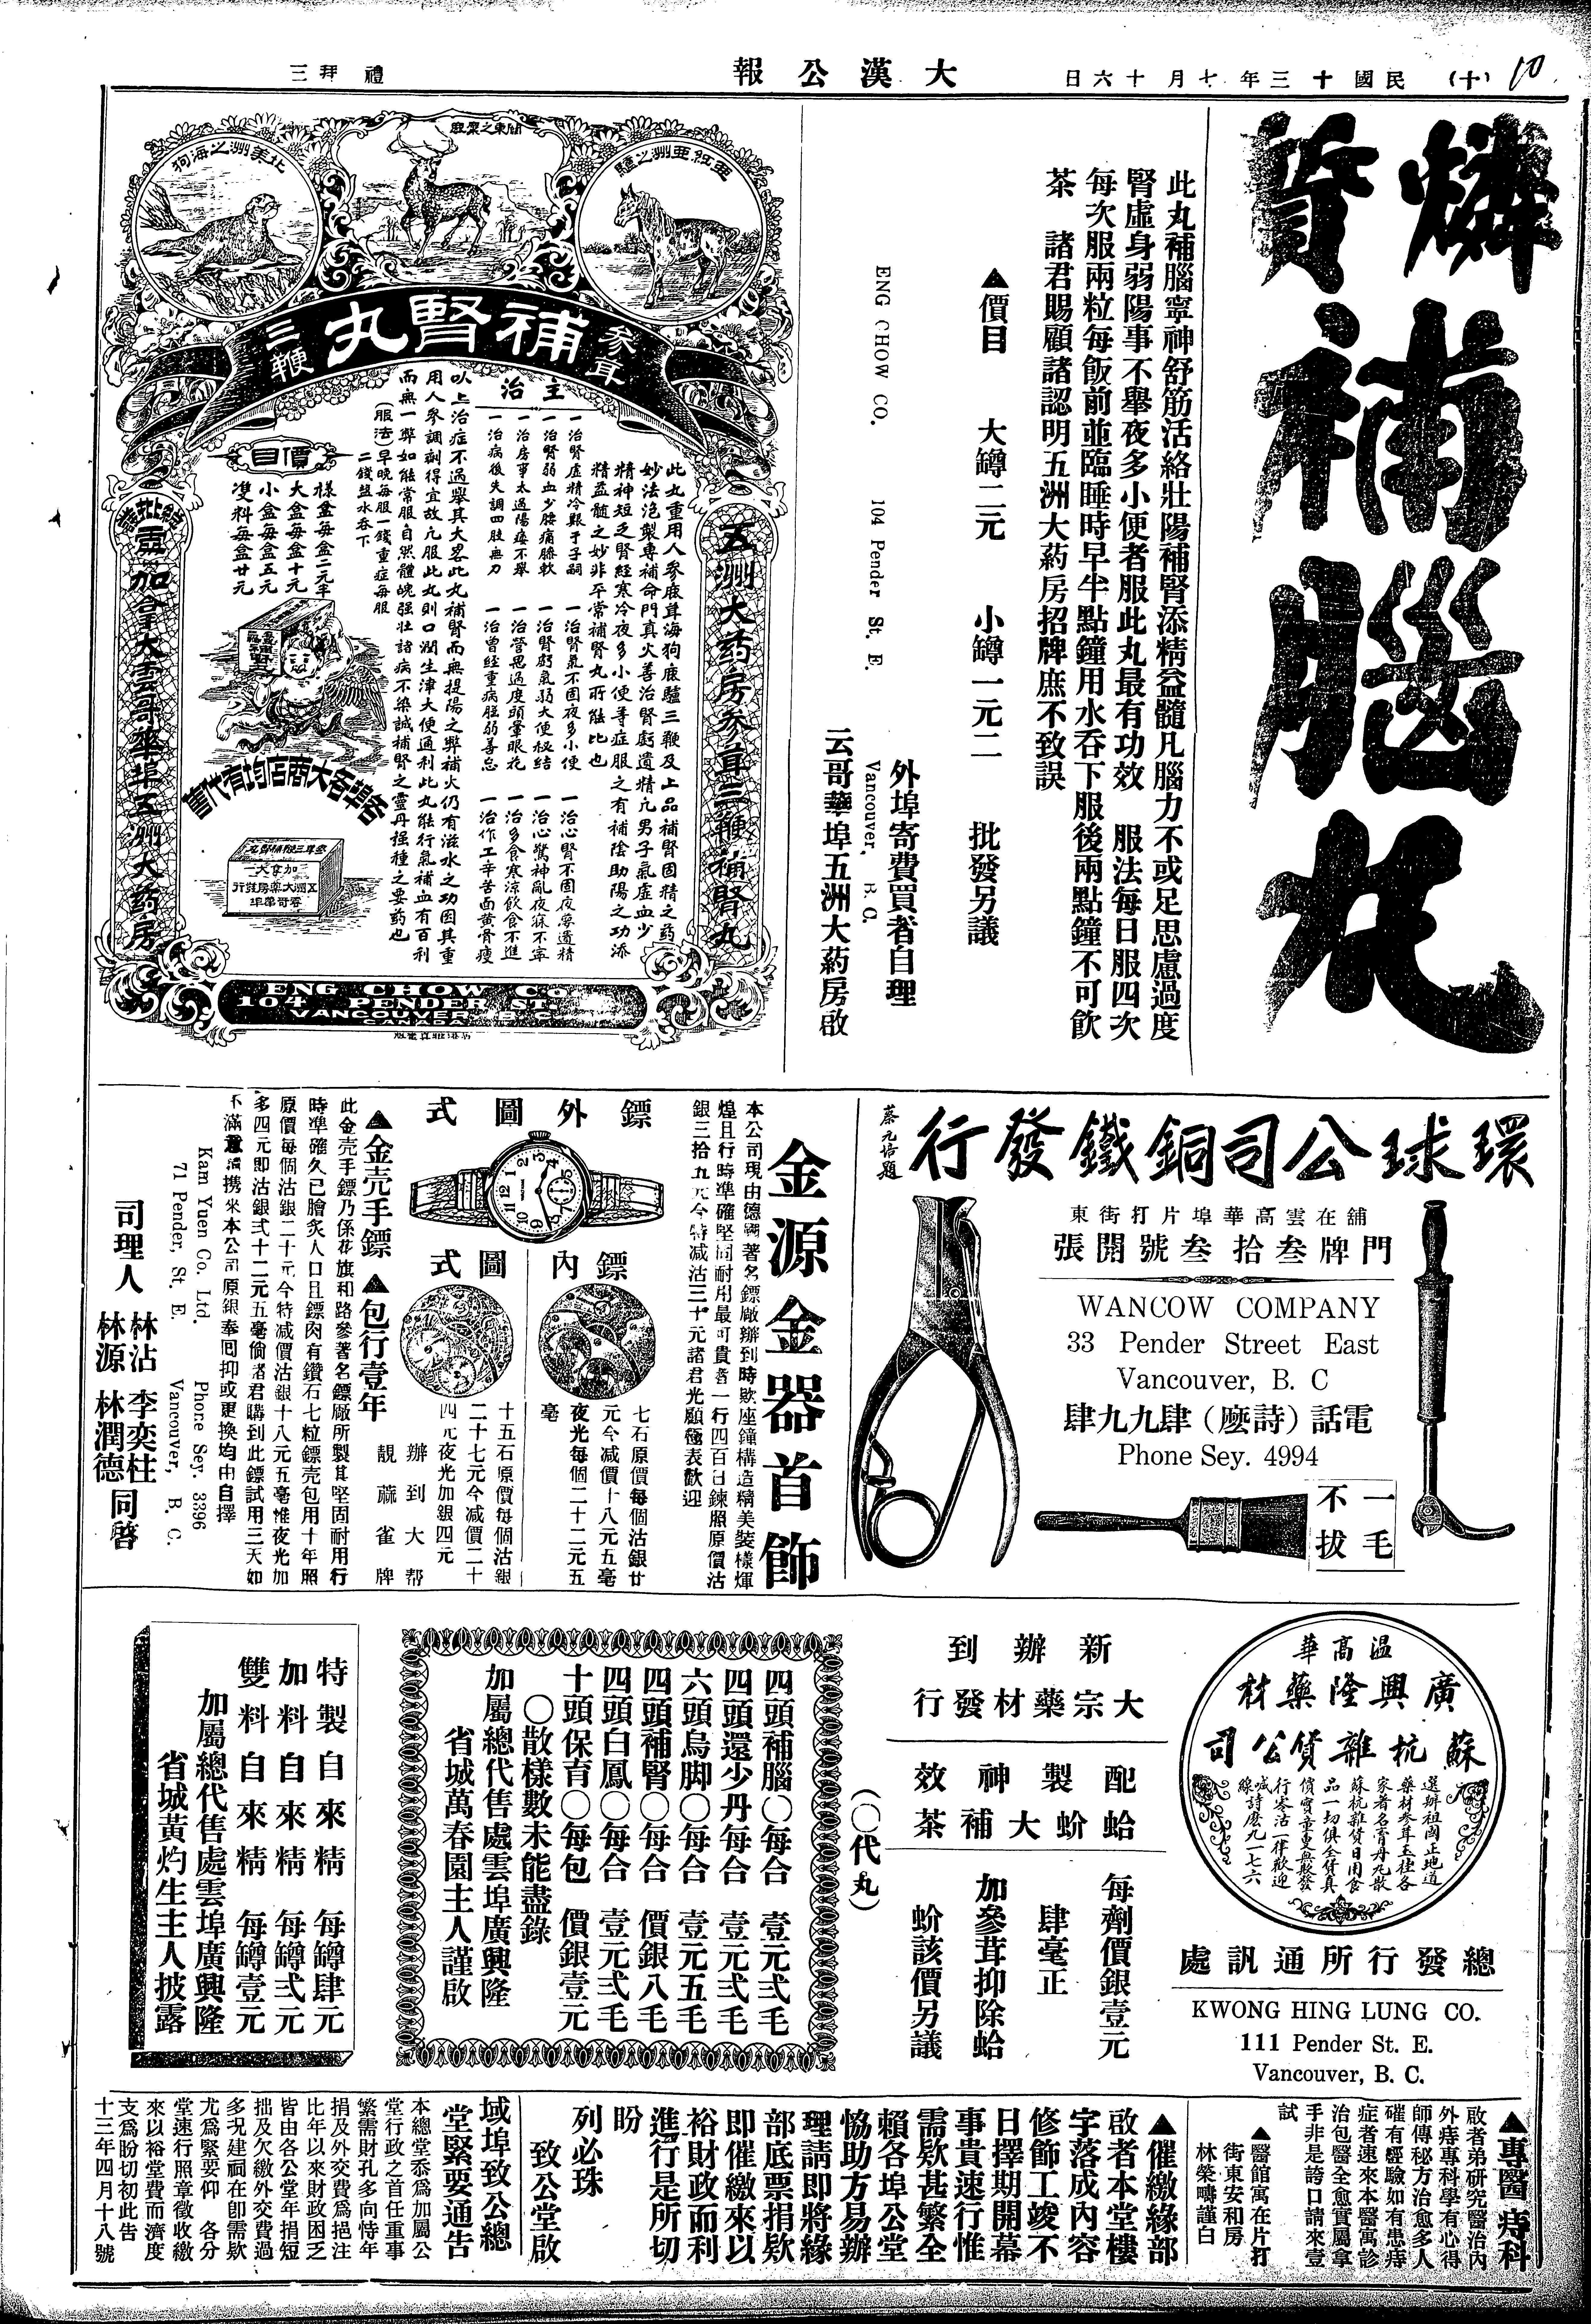 (十) 民國十三年七月十六日
大漢公報
禮拜三
10
燐質補腦丸
此丸補腦寧神舒筋活絡壯陽補腎添精益髓凡腦力不或足思慮過度
腎虛身弱陽事不舉夜多小便者服此丸最有功效 服法每日服四次
每次服兩粒每飯前並臨睡時早半點鐘用水吞下服後兩點鐘不可飲
茶 諸君賜顧諸認明五洲大葯房招牌庶不致誤
▲價目 大罇二元 小罇一元二 批發另議
外埠寄費買者自理
ENG CHOW CO. 104 Pender St. E. Vancouver, B. C.
云哥華埠五洲大葯房啟
亞紅亞洲之驢
北美洲之海狗
參茸
補腎丸
三鞭
五洲大葯房參茸三鞭補腎丸
此丸重用人參鹿茸海狗鹿驢三鞭及上品補腎固精之药
妙法泡製專補命門真火善治腎虧遺精凢男子氣虛血少
精神短乏腎經寒冷夜多小便等症服之有補陰助陽之功添
精益髓之妙非平常補腎丸所能比也
主治
一治腎虛精冷艱于子嗣 一治腎氣不固夜多小便 一治心腎不固夜夢遺精
一治腎弱血少腰痛膝軟 一治腎虧氣弱大便秘结 一治心驚神亂夜寐不寧
一治房事太過陽痿不舉 一治營思過度頭暈眼花 一治多食寒涼飲食不進
一治病後失調四肢無力 一治曾經重病胵弱善忘 一治作工辛苦面黄骨瘦
以上治症不過舉其大畧此丸補腎而無提陽之弊補火仍有滋水之功因其重
用人參調劑得宜故凢服此丸則口潤生津大便通利此丸能行氣補血有百利
而無一弊如能常服自然體魄强壯諸病不染誠補腎之靈丹强種之要葯也
(服法)早晚每服一錢重症每服
二錢盐水吞下
價目
樣盒每盒二元半
大盒每盒十元
小盒每盒五元
雙料每盒廿元
各埠各大商店均有代售
加拿大雲哥華埠五洲大葯房
ENG CHOW Co.
104 PENDER ST.
VANCOUVER B.C.
CANADA
環球公司銅鐵發行
蔡元培題
舖在雲高華埠片打街東
門牌叁拾叁號開張
WANCOW COMPANY
33 Pender Street East
Vancouver, B. C
電話(詩麽)肆九九肆
Phone Sey. 4994
一毛
不拔
金源金器首飾
本公司現由德國著名鏢廠辦到時欵座鐘構造精美裝樣煇
煌且行時準確堅固耐用最可貴者一行四百日鍊照原價沽
銀三拾五元今特减沽三十元諸君光顧極表歡迎
鏢外圖式
鏢內
圖式
七石原價每個沽銀廿
元今减價十八元五毫
夜光每個二十二元五
毫
十五石原價每個沽銀
二十七元今减價二十
四元夜光加銀四元
辦到大帮
靚蔴雀牌
▲金壳手鏢 ▲包行壹年
此金壳手鏢乃係花旗和路參著名鏢廠所製其堅固耐用行
時準確久已膾炙人口且鏢肉有鑽石七粒鏢壳包用十年照
原價每個沽銀二十元今特减價沽銀十八元五毫惟夜光加
多四元即沽銀弍十二元五毫倘諸君購到此鏢試用三天如
不滿意請携來本公司原銀奉囘抑或更換均由自擇
Kam Yuen Co. Ltd. Phone Sey. 3396
71 Pender, St. E. Vancouver, B. C.
司理人 林沾 李奕柱 林源 林潤德 同啓
温高華
廣興隆藥材
蘇杭雜貨公司
選辦祖國正地道
藥材參茸玉桂各
家著名膏丹丸散
蘇杭雜貨日用食
品一切俱全貨真
價實童叟無欺發
行零沽一律歡迎
喊線詩麽九一七六
總發行所通訊處
KWONG HING LUNG CO.
111 Pender St. E.
Vancouver, B. C.
新辦到
大宗藥材發行
配製神效
蛤蚧大補茶
每劑價銀壹元
肆毫正
加參茸抑除蛤
蚧該價另議
(〇代丸)
四頭補腦〇每合 壹元弍毛
四頭還少丹每合 壹元弍毛
六頭烏脚〇每合 壹元五毛
四頭補腎〇每合 價銀八毛
四頭白鳳〇每合 壹元弍毛
十頭保育〇每包 價銀壹元
〇散樣數未能盡錄
加屬總代售處雲埠廣興隆
省城萬春園主人謹啟
特製自來精 每罇肆元
加料自來精 每罇弍元
雙料自來精 每罇壹元
加屬總代售處雲埠廣興隆
省城黃灼生主人披露
▲專醫痔科
啟者弟研究醫治內
外痔專科學有心得
師傳秘方治愈多人
確有經驗如有患痔
症者速來本醫寓診
治包醫全愈實屬拿
手非是誇口請來壹
試
▲醫館寓在片打
街東安和房
林榮疇謹白
▲催繳緣部
啟者本堂樓
字落成內容
修飾工竣不
日擇期開幕
事貴速行惟
需欵甚繁全
賴各埠公堂
協助方易辦
理請即將緣
部底票捐欵
即催繳來以
裕財政而利
進行是所切
盼
列必珠
致公堂啟
域埠致公總
堂緊要通告
本總堂忝爲加屬公
堂行政之首任重事
繁需財孔多向恃年
捐及外交費爲挹注
比年以來財政困乏
皆由各公堂年捐短
拙及欠繳外交費過
多况建祠在卽需欵
尤爲緊要仰 各分
堂速行照章徵收繳
來以裕堂費而濟度
支爲盼切切此告
十三年四月十八號